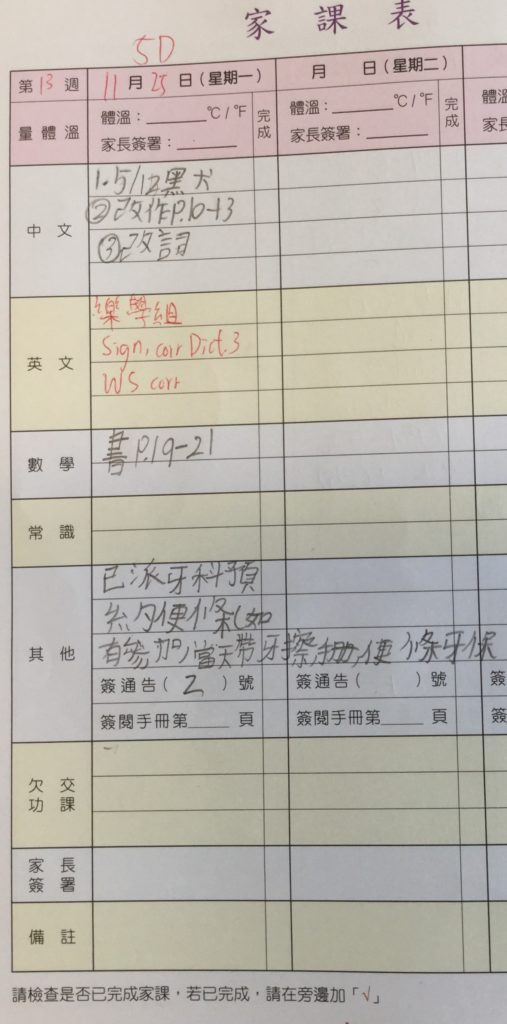 家課表
5D
第13週 11月25日(星期一) 月 日(星期二)
量體溫 體溫：______℃/℉ 完成 體溫：______℃/℉ 完成 體溫
家長簽署：______ 家長簽署：______ 家長
中文 1.5/12黑犬
②改作P.10-13
③改詞
英文 樂學組
Sign, corr Dict.3
WS corr
數學 書P.19-21
常識
其他 已派牙科預
約便條(如
有參加,當天帶牙擦,便條牙保
簽通告( 2 )號 簽通告( )號 簽
簽閱手冊第____頁 簽閱手冊第____頁 簽
欠交功課
家長簽署
備註
請檢查是否已完成家課，若已完成，請在旁邊加「√」